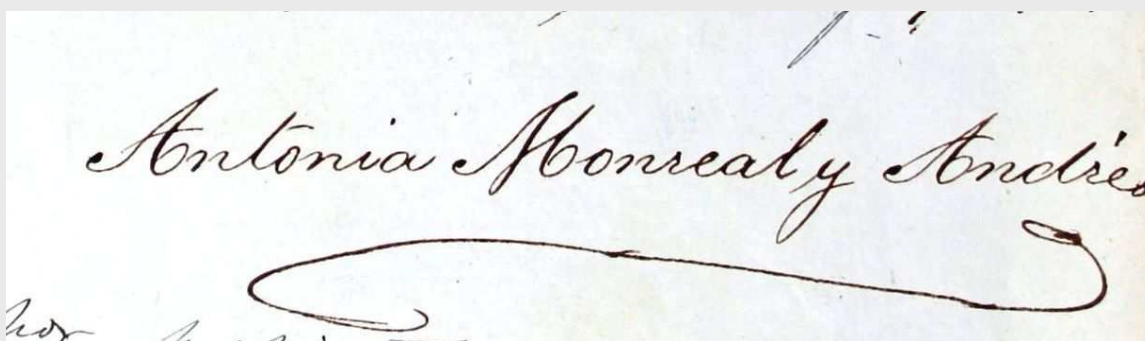 Antonia Monreal y Andrés